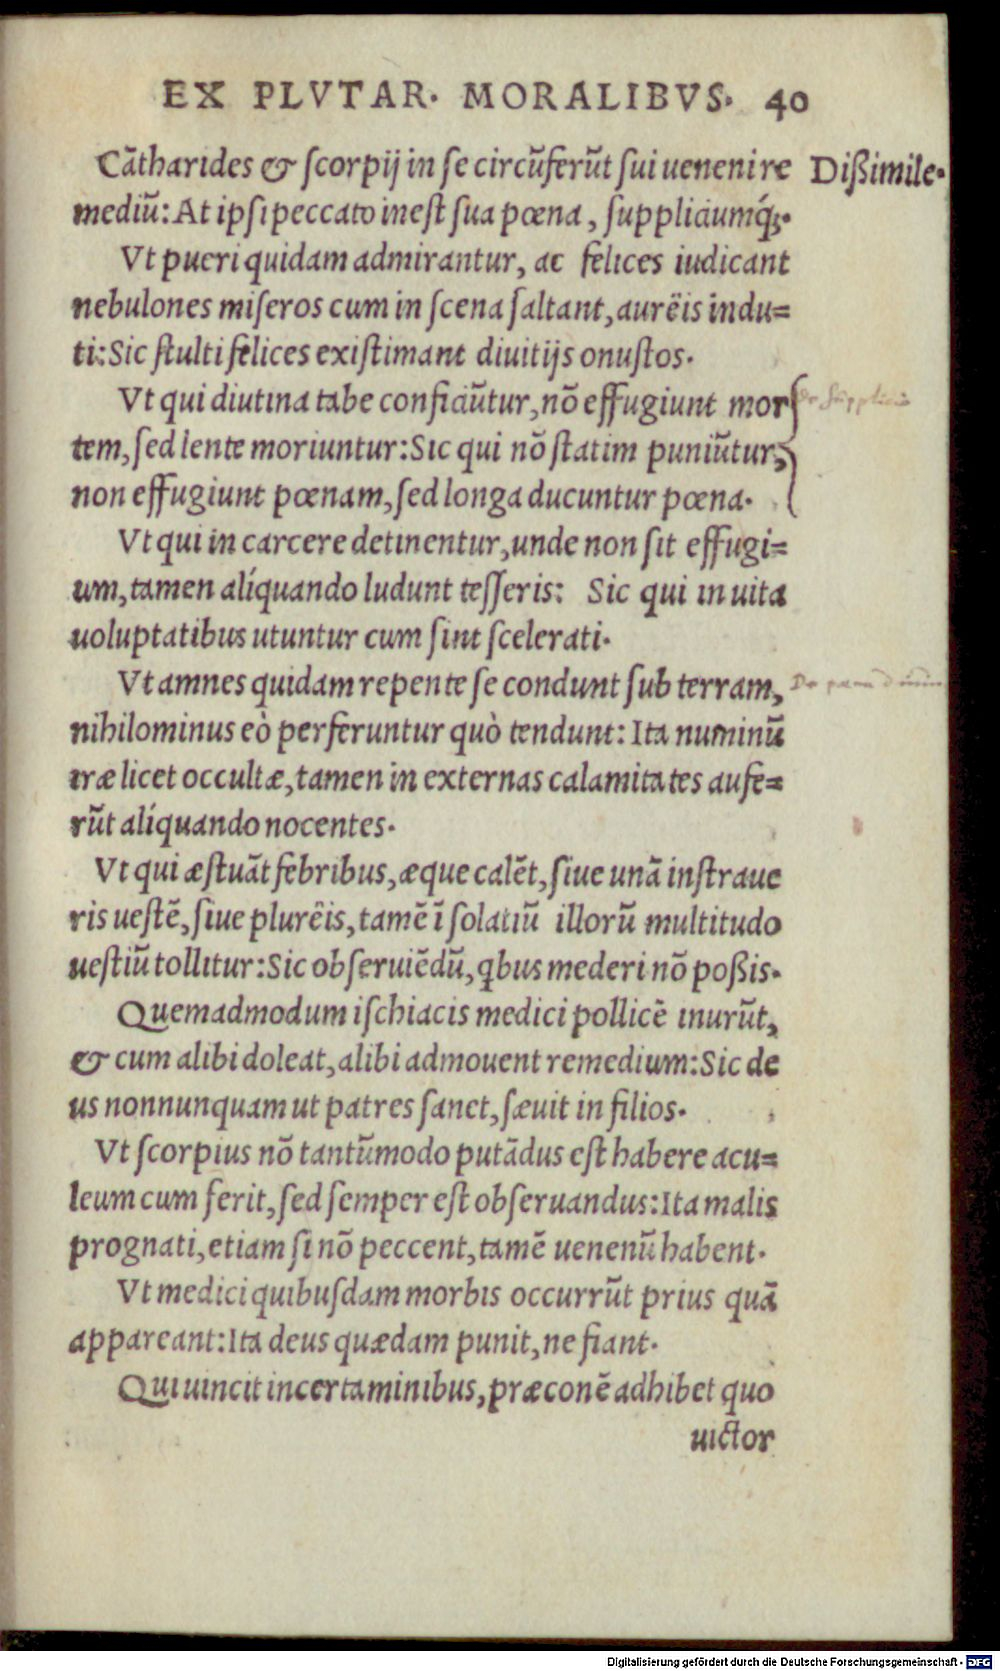 EX PLVTAR. MORALIBVS. 40
Cātharides & ſcorpij in ſe circūferūt ſui ueneni re Dißimile.
mediū: At ipſi peccato ineſt ſua pœna, ſuppliciumq́;.
Vt pueri quidam admirantur, ac felices iudicant
nebulones miſeros cum in ſcena ſaltant, aurëis indu=
ti: Sic ſtulti felices exiſtimant diuitijs onuſtos.
Vt qui diutina tabe conficiūtur, nō effugiunt mor
tem, ſed lente moriuntur: Sic qui nō ſtatim puniūtur,
non effugiunt pœnam, ſed longa ducuntur pœna.
Vt qui in carcere detinentur, unde non ſit effugi=
um, tamen alíquando ludunt teſſeris: Sic qui in uita
uoluptatibus utuntur cum ſint ſcelerati.
Vt amnes quidam repente ſe condunt ſub terram,
nihilominus eò perferuntur quò tendunt: Ita numinū
iræ licet occultæ, tamen in externas calamitates aufe=
rūt alíquando nocentes.
Vt qui æſtuāt febribus, æque calēt, ſiue unā inſtraue
ris ueſtē, ſiue plurëis, tamē ī ſolatiū illorū multitudo
ueſtiū tollitur: Sic obſeruiēdū, qbus mederi nō poßis.
Quemadmodum iſchiacis medici pollicē inurūt,
& cum alibi doleat, alibi admouent remedium: Sic de
us nonnunquam ut patres ſanet, ſæuit in filios.
Vt ſcorpius nō tantūmodo putādus eſt habere acu=
leum cum ferit, ſed ſemper eſt obſeruandus: Ita malis
prognati, etiam ſi nō peccent, tamē uenenū habent.
Vt medici quibuſdam morbis occurrūt prius quā
appareant: Ita deus quædam punit, ne fiant.
Qui uincit in certaminibus, præconē adhibet quo
uictor
Digitalisierung gefördert durch die Deutsche Forschungsgemeinschaft - DFG